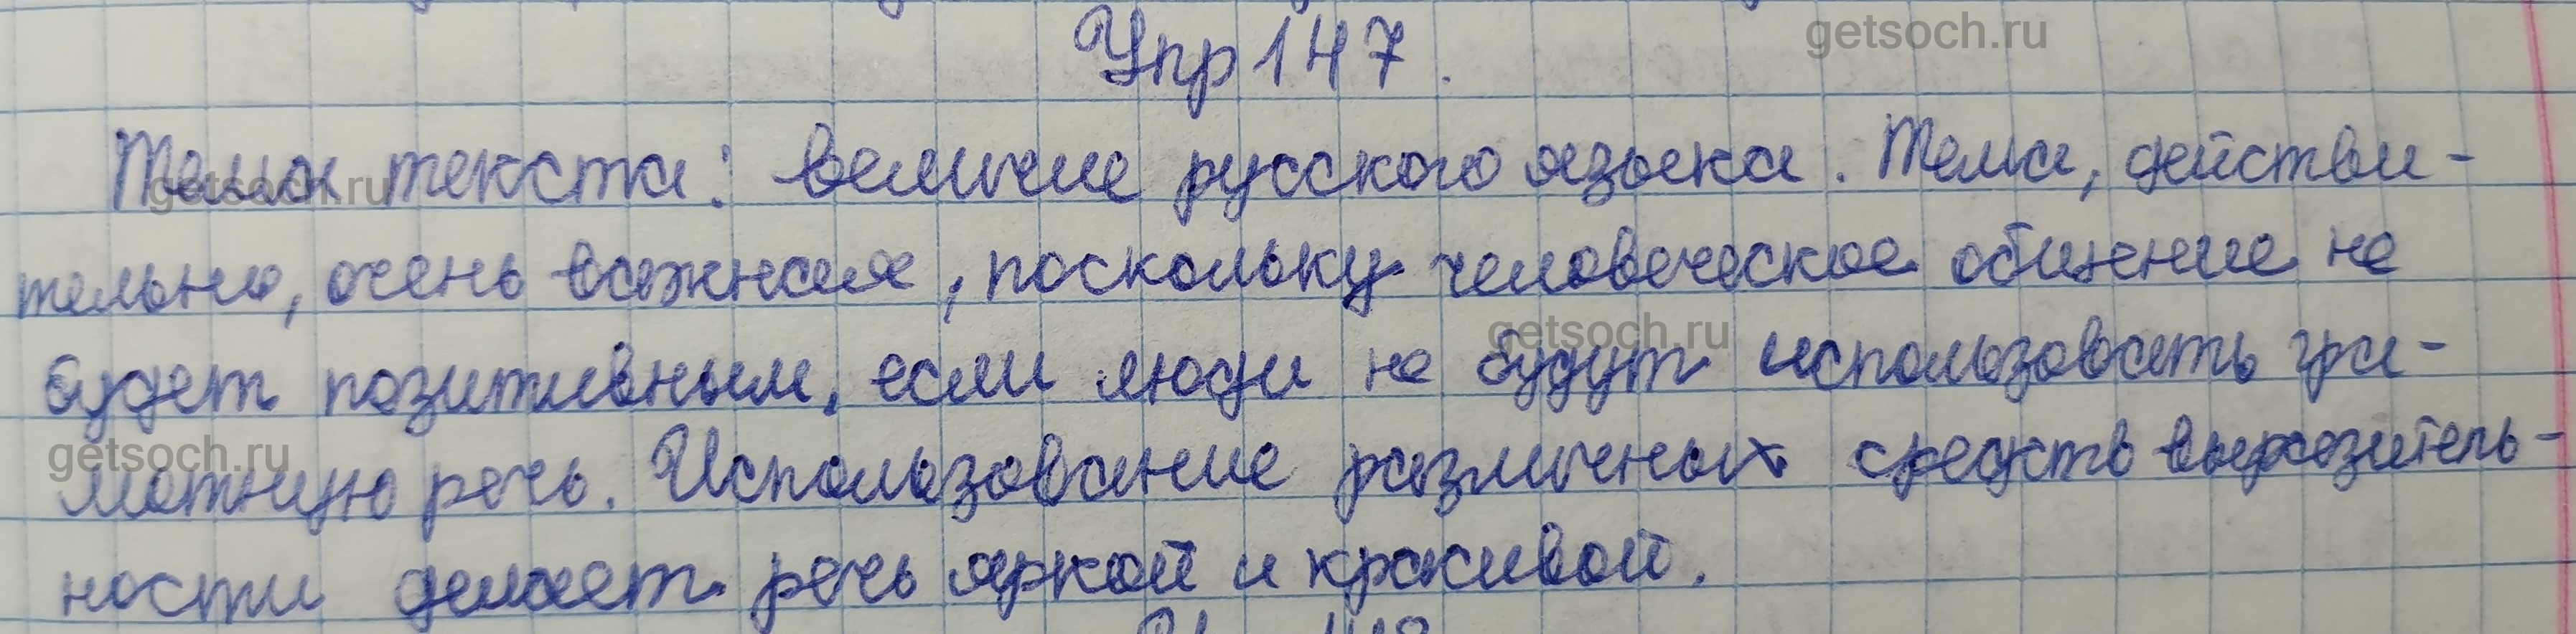 Упр 147.
Тема текста: величие русского языка. Тема, действи-
тельно, очень важная, поскольку человеческое общение не
будет позитивным, если люди не будут использовать гра-
мотную речь. Использование различных средств выразитель-
ности делает речь яркой и красивой.
getsoch.ru
getsoch.ru
getsoch.ru
getsoch.ru